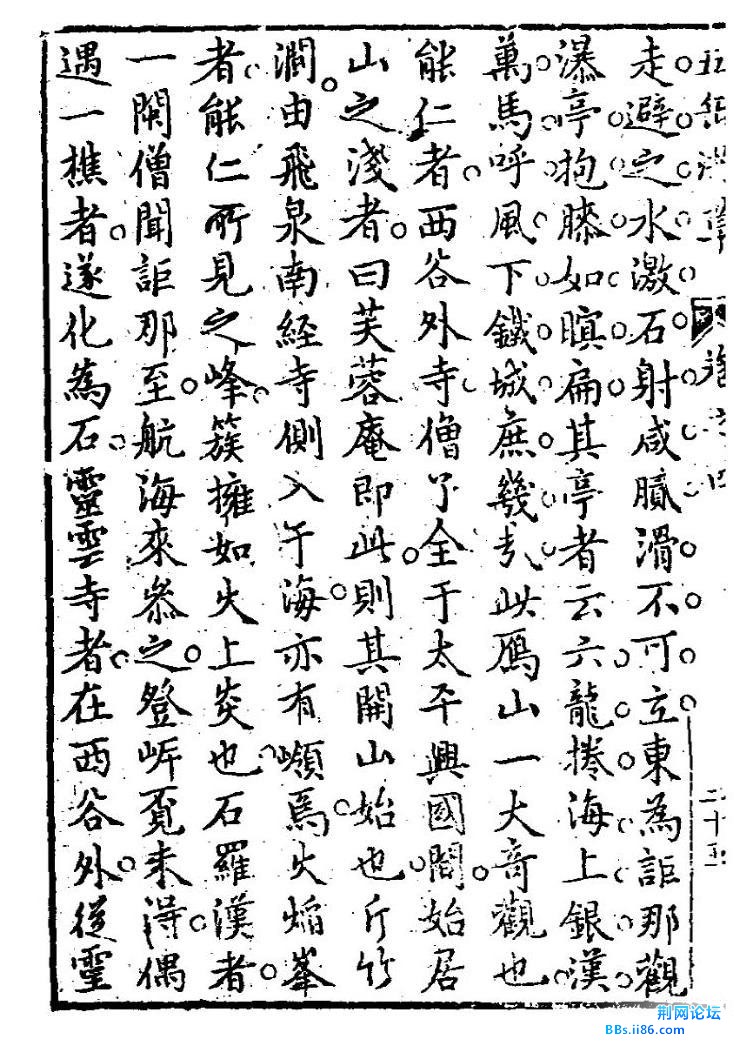 走避之水激石射咸膩滑不可立東為詎那觀
瀑亭抱膝如瞑扁其亭者云六龍捲海上銀漢
萬馬呼風下鐵城庶幾哉此鴈山一大奇觀也
能仁者西谷外寺僧全于太平興國間始居
山之淺者曰芙蓉庵即此則其開山始也斤竹
澗由飛泉南經寺側入于海亦有嶺焉火焰峯
者能仁所見之峰簇擁如火上炎也石羅漢者
一闕僧聞詎那至航海來參之登岍覓未得偶
遇一樵者遂化為石靈雲寺者在西谷外從靈
二十五
荆网论坛
BBs.ii86.com